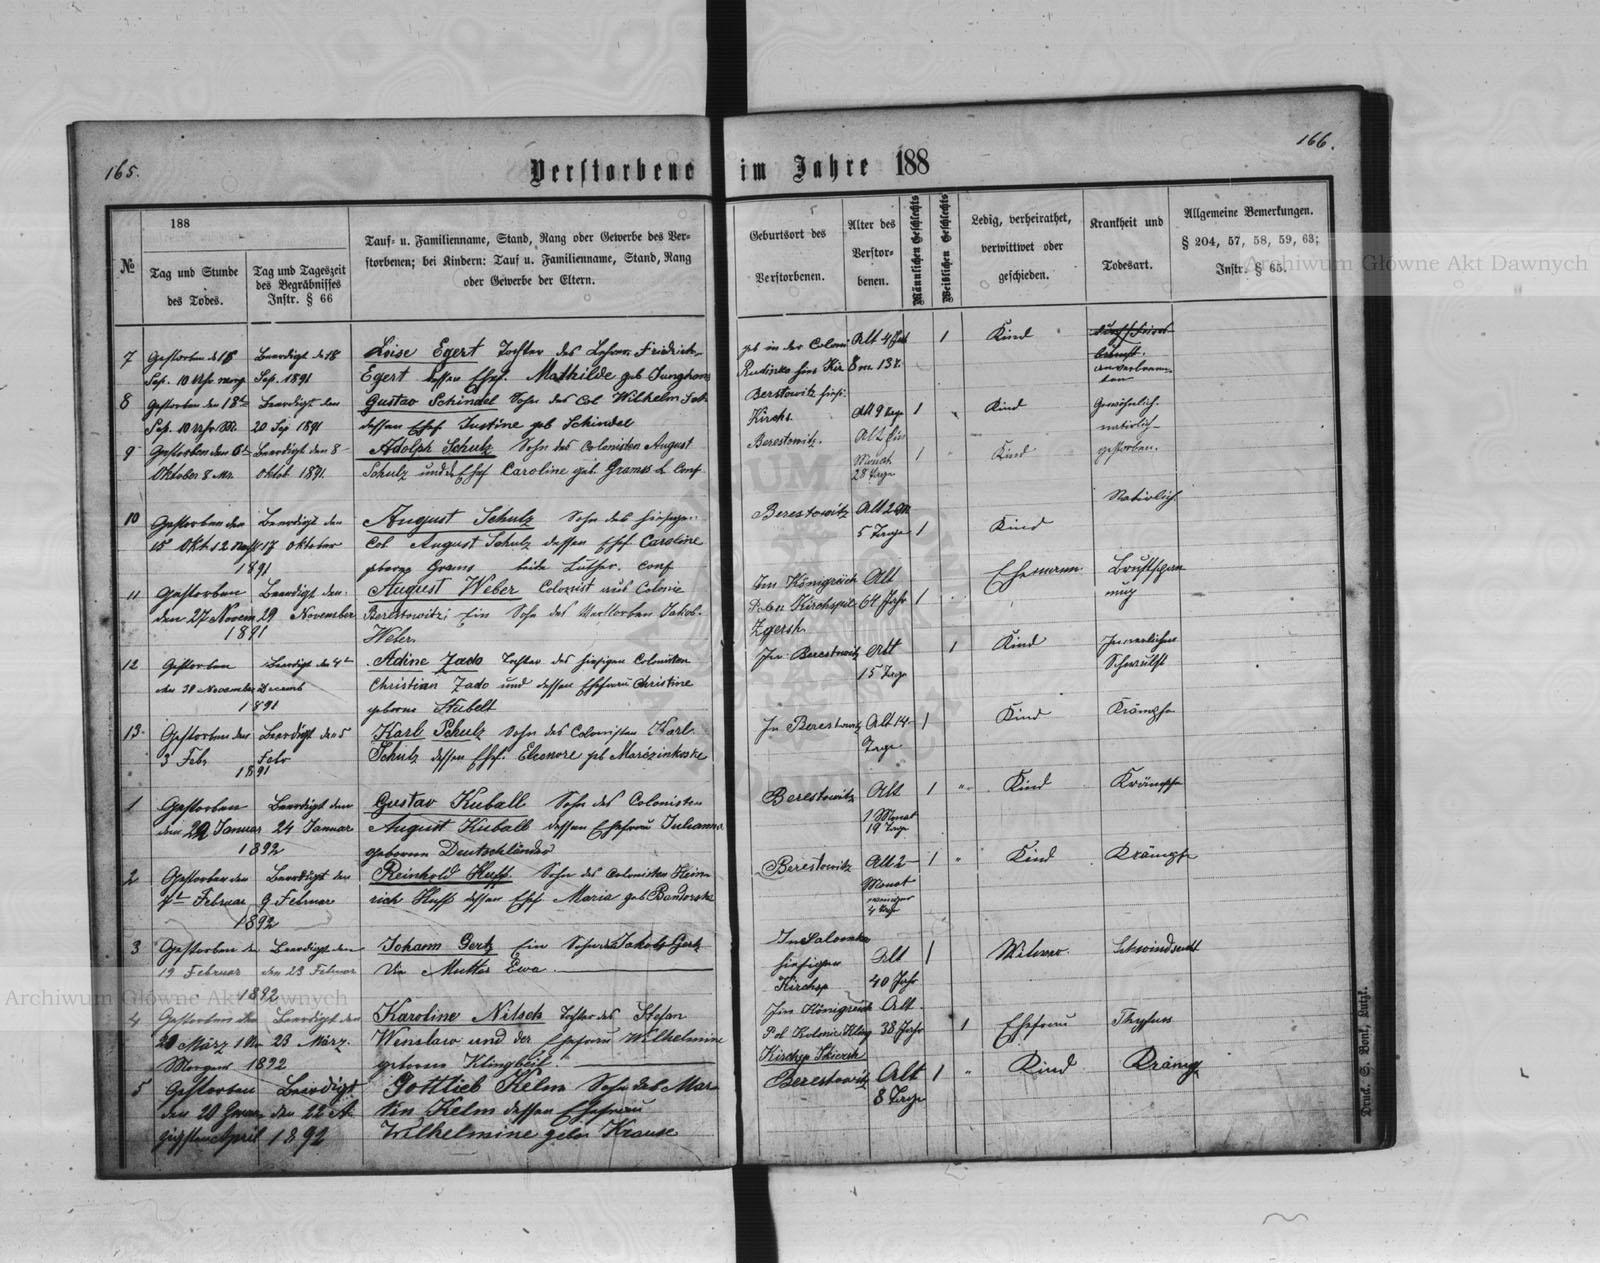 165.
166.
Verstorbene im Jahre 188
№
188
Tag und Stunde
des Todes.
Tag und Tageszeit
des Begräbnisses
Instr. § 66
Tauf- u. Familienname, Stand, Rang oder Gewerbe des Ver-
storbenen; bei Kindern: Tauf u. Familienname, Stand, Rang
oder Gewerbe der Eltern.
Geburtsort des
Verstorbenen.
Alter des
Verstor-
benen.
Männlichen Geschlechts
Weiblichen Geschlechts
Ledig, verheirathet,
verwittwet oder
geschieden.
Krankheit und
Todesart.
Allgemeine Bemerkungen.
§ 204, 57, 58, 59, 63;
Instr. § 65.
Archiwum Główne Akt Dawnych
7 Gestorben d 18 Beerdigt de 18 Loise Egert Tochter des Friedrich
Sep. 10 Uhr morg Sep. 1891 Egert dessen Ehef. Mathilde geb Junghans
geb in der Coloni Alt 4 Jah 1 Kind
8 m. 13 t.
8 Gestorben den 18ten Beerdigt den Gustav Schindel Sohn des Col Wilhelm Sch
Sep. 10 Uhr M. 20 Sep 1891 dessen Ehef Justine geb Schindel
Berstowitz hies.
Kirchs. Alt 9 Tage 1 Kind Gewöhnlich
natürlich
9 Gestorben den 6ten Beerdigt den 8 Adolph Schulz Sohn des Colonisten August
Oktober 8 Mr. Oktob 1891. Schulz und de Ehef Caroline geb. Grams L Conf
Berestowitz. Alt Ein
Monat 1 Kind gestorben.
28 Tage
10 Gestorben den Beerdigt den August Schulz Sohn des hiesigen
15 Okt. 17 Oktober Col August Schulz dessen Ehef Caroline
1891 geborene Grams beide Luther. Conf
Berestowitz Alt 2 M
5 Tage 1 Kind Natürlich
11 Gestorben Beerdigt den August Weber Colonist aus Colonie
den 27 Novem 29 November Berestowitz; Ein Sohn des Verstorben Jakob
1891 Weber
Im Königreich Alt
Polen Kirchspiel 64 Jahr 1
Zgersh
Ehemann
12 Gestorben Beerdigt de 4t Adine Zado Tochter des hiesigen Colonisten
den 30 November Decemb Christian Zado und dessen Ehefrau Christine
1891 geborene Stubelt
In Berestowitz Alt 1 Kind
15 Tage Schwulst
13 Gestorben den Beerdigt den 5 Karl Schulz Sohn des Colonisten Karl
3 Febr Febr Schulz dessen Ehef. Eleonore geb Marczinkoske
1891
In Berestowitz Alt 14 1 Kind Krämpfe
Tage
1 Gestorben Beerdigt den Gustav Kuball Sohn des Colonisten
den 22 Januar 24 Januar August Kuball dessen Ehefrau Julianna
1892 geborene Deutschländer
Berestowitz Alt 1 Kind Krämpfe
1 Monat
19 Tage
2 Gestorben den Beerdigt den Reinhold Huff Sohn des Colonisten Hein
7t Februar 9 Februar rich Huff dessen Ehef Maria geb Bandorske
1892
Berestowitz Alt 2 1 Kind Krämpfe
Monat
weniger
4 Tage
3 Gestorben de Beerdigt den Johann Gertz Ein Sohn des Jakob Gertz
19 Februar den 23 Februar Die Mutter Ewa.
1892
In Salomka
hiesigen Alt 1 Witwer Schwindsucht
Kirchsp 40 Jahr
4 Gestorben den Beerdigt den Karoline Nitsch Tochter des Stefan
20 März 1 Uhr 23 März. Wenslaw und der Ehefrau Wilhelmine
Morgens 1892 geboren Klingbeil.
Im Königreich Alt
Pol Kolonie Kling 38 Jahr 1 Ehefrau Thyfus
Kirchsp
5 Gestorben Beerdigt Gottlieb Kelm Sohn des Mar
den 20 den 22 A tin Kelm dessen Ehefrau
April 1892 Wilhelmine gebor Krause
Berestowitz Alt 1 Kind Krämp
8 Tage
Archiwum Główne Akt Dawnych